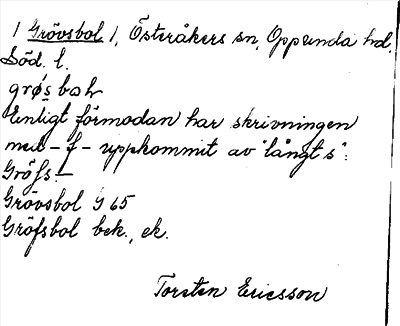 / Grövsbol /, Österåkers sn, Oppunda hd.
Söd. l.
grøs̲ bo
Enligt förmodan har skrivningen
med - f - uppkommit av "långt s":
Gröfs -
Grövsbol G 65
Gröfsbol bek., ek.
Torsten Ericsson